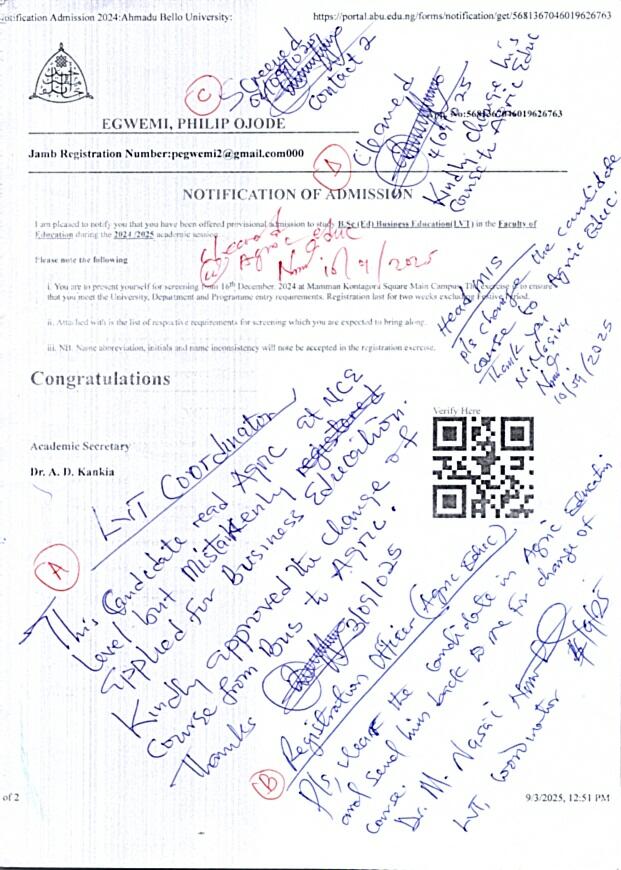 Notification Admission 2024:Ahmadu Bello University:
https://portal.abu.edu.ng/forms/notification/get/5681367046019626763
C
Screened
Contact 2
EGWEMI, PHILIP OJODE
No:5681367046019626763
Jamb Registration Number:pegwemi2@gmail.com000
D
Cleared
4/09/025
Kindly change his
Course to Agric Educ
NOTIFICATION OF ADMISSION
I am pleased to notify you that you have been offered provisional admission to study B.Sc(Ed) Business Education(LVT) in the Faculty of
Education during the 2024/2025 academic session.
Cleared
Agric Educ
10/9/2025
Please note the following
i. You are to present yourself for screening from 16th December, 2024 at Mamman Kontagora Square Main Campus. The exercise is to ensure
that you meet the University, Department and Programme entry requirements. Registration last for two weeks excluding Festive Period.
ii. Attached with is the list of respective requirements for screening which you are expected to bring along.
iii. NB. Name abbreviation, initials and name inconsistency will note be accepted in the registration exercise.
Head MIS
pls change the candidate
course to Agric Educ.
Thank you
10/09/2025
Congratulations
Verify Here
Academic Secretary
Dr. A. D. Kankia
A
LVT Coordinator
This Candidate read Agric at NCE
Level but Mistakenly registered
applied for Business Education.
Kindly approved the change of
Course from Bus to Agric.
Thanks
3/09/025
B
Registration Officer (Agric Educ)
Pls, clear the candidate in Agric Education
and send him back to me for change of
course.
Dr. M. Nasai
LVT, Coordinator
of 2
9/3/2025, 12:51 PM